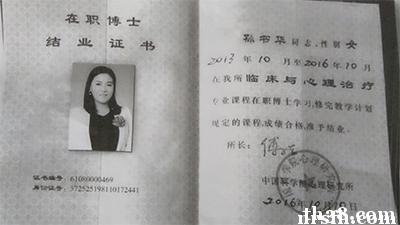 在职博士
结业证书
证书编号：61080000469
身份证号：372525198110172441
孙书华 同志，性别 女
2013 年 10 月至 2016 年 10 月
在我所 临床与心理治疗
专业课程在职博士学习，修完教学计划
规定的课程，成绩合格，准予结业。
所长：
中国科学院心理研究所
2016年10月10日